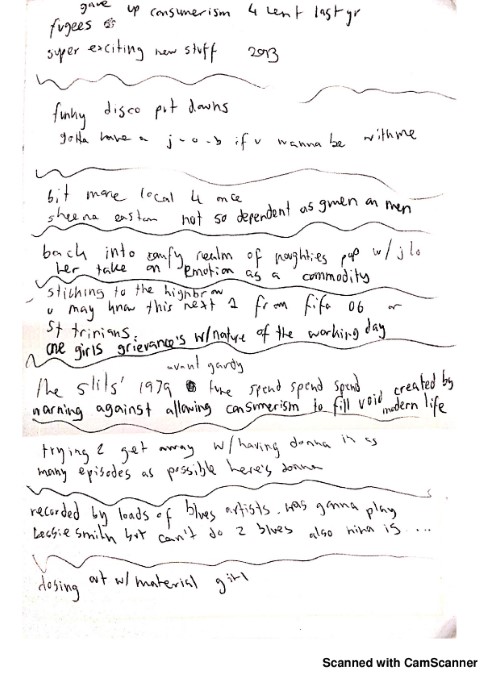 gave up consumerism 4 lent last yr
fugees
super exciting new stuff 2013
funky disco put downs
gotta have a j-o-b if u wanna be with me
bit more local 4 once
sheena easton not so dependent as gwen on men
back into comfy realm of noughties pop w/ j lo
her take on emotion as a commodity
stitching to the highbrow
u may know this next 1 from fifa 06 or
st trinians.
one girls grievance's w/nature of the working day
avant gardy
the slits' 1979 tune spend spend spend created by
warning against allowing consumerism to fill void modern life
trying 2 get away w/having donna in as
many episodes as possible here's donna
recorded by loads of blues artists. was gonna play
bessie smith but can't do 2 blues also nina is ...
closing out w/ material girl
Scanned with CamScanner